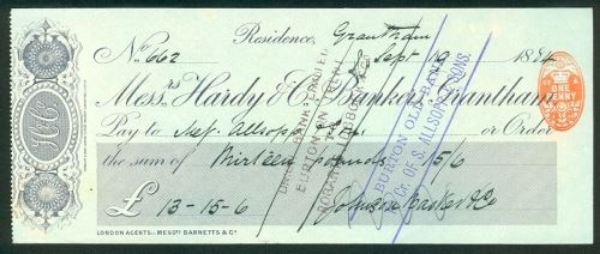 Residence, Grantham
No. 662 Sept 19 1884
Mess.rs Hardy & Co. Bankers, Grantham
Pay to Mess. Allsopp or Order
the sum of thirteen pounds 15/6
£ 13-15-6
LONDON AGENTS:- MESSRS BARNETTS & Co
H&Co
ONE PENNY
BURTON OLD BANK
Cr. OF S. ALLSOPP & SONS.
BURTON ON TRENT